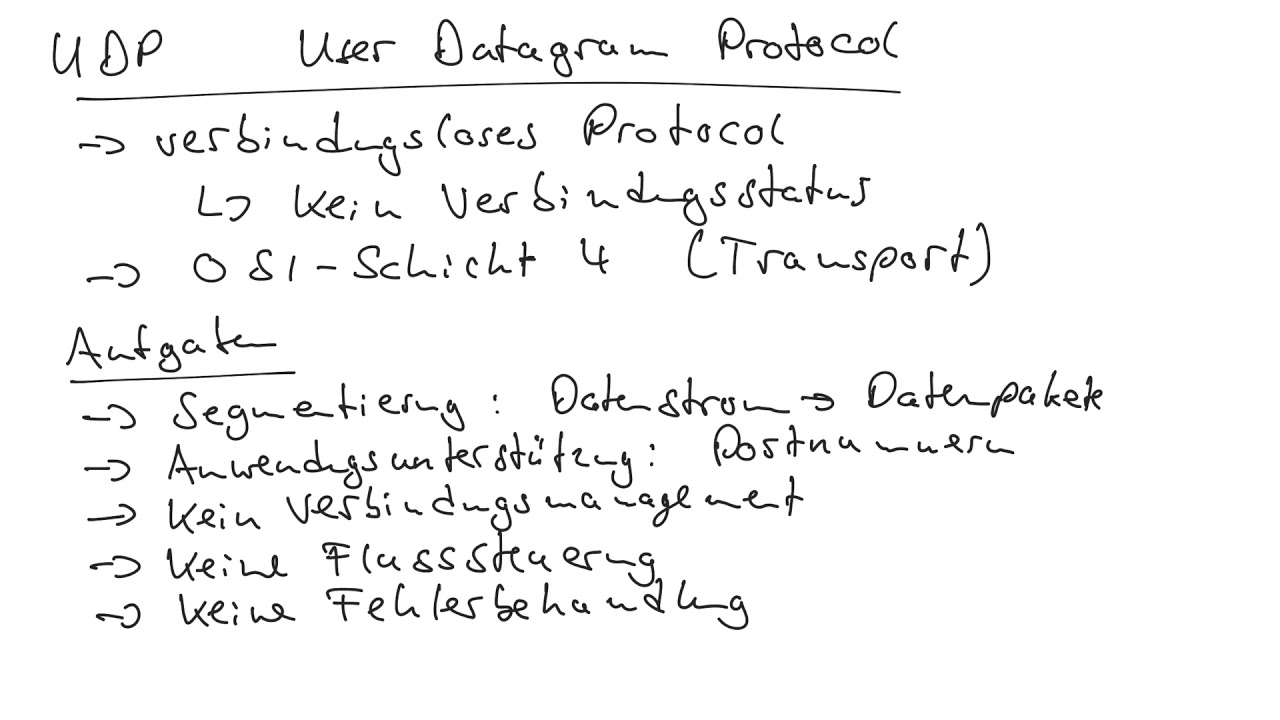 UDP User Datagram Protocol
→ verbindungsloses Protocol
↳ kein Verbindungsstatus
→ OSI-Schicht 4 (Transport)
Aufgaben
→ Segmentierung: Datenstrom → Datenpakete
→ Anwendungsunterstützung: Portnummern
→ kein Verbindungsmanagement
→ keine Flusssteuerung
→ keine Fehlerbehandlung